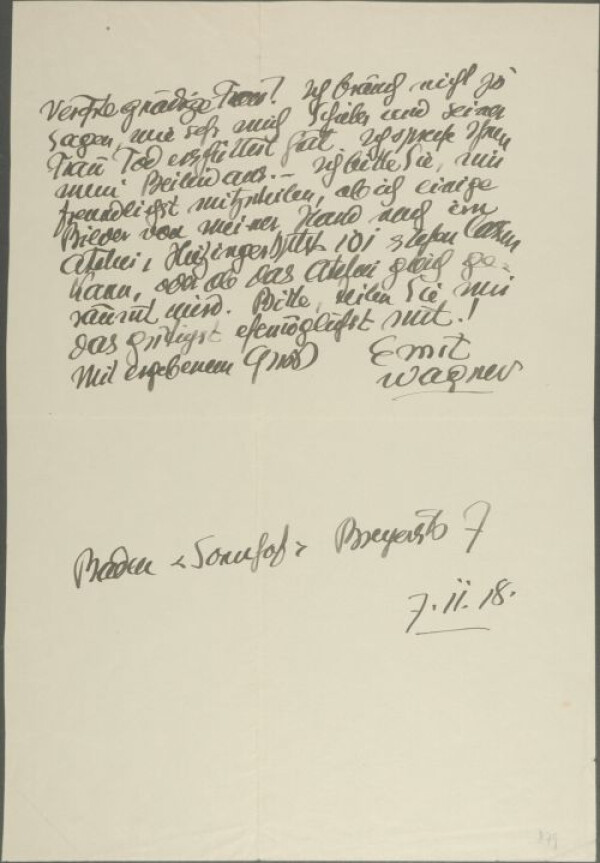 Verehrte gnädige Frau! Ich brauch nicht zu
sagen, wie sehr mich Schieles und seiner
Frau Tod erschüttert hat. Ich spreche Ihnen
mein Beileid aus. – Ich bitte Sie, mir
freundlichst mitzuteilen, ob ich einige
Bilder von meiner Hand noch im
Atelier, Hietzingerhptstr 101 stehen lassen
kann, oder ob das Atelier gleich ge-
räumt wird. Bitte, teilen Sie mir
das gütigst ehemöglichst mit!
Mit ergebenem Gruß Emil
Wagner
Baden "Sonnhof" 7
7. II. 18.
179